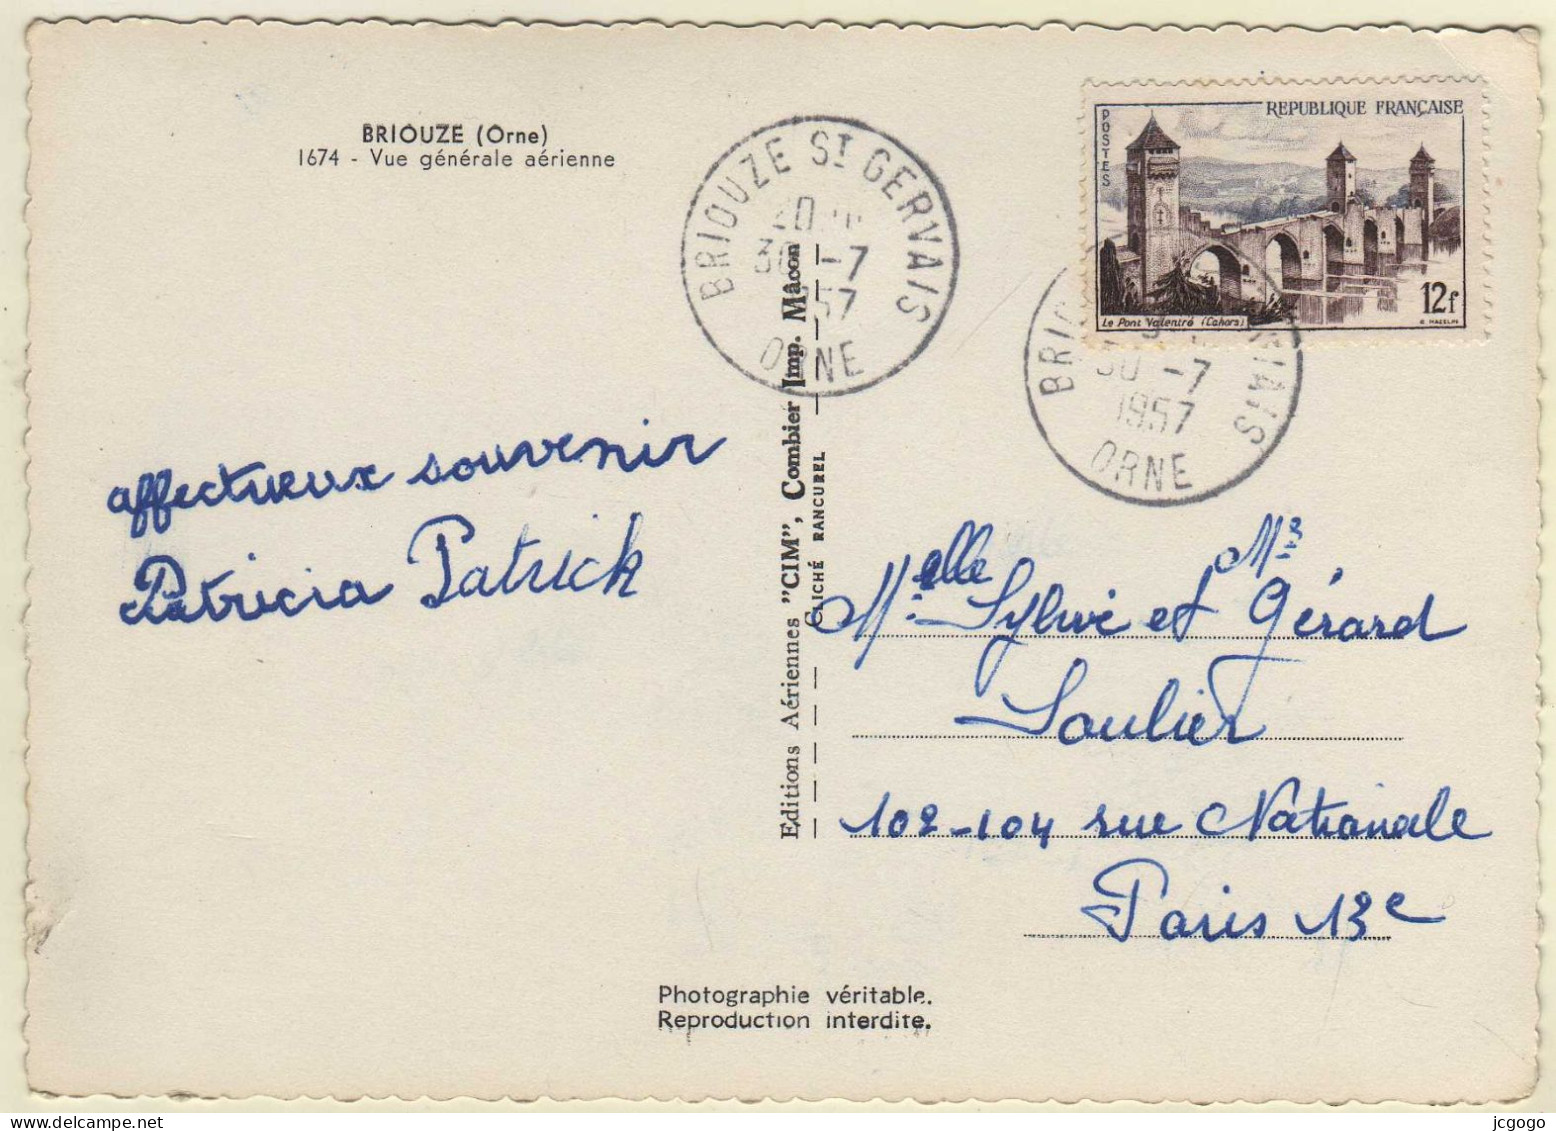 BRIOUZE (Orne)
1674 - Vue générale aérienne
BRIOUZE ST GERVAIS
30 -7
1957
ORNE
POSTES
REPUBLIQUE FRANÇAISE
Le Pont Valentré (Cahors)
12f
30 -7
1957
ORNE
affectueux souvenir
Patricia Patrick
Editions Aériennes "CIM", Combier Imp. Mâcon
CLICHÉ RANCUREL
Melle Sylvie et Mr Gérard
Soulier
102-104 rue Nationale
Paris 13e
Photographie véritable.
Reproduction interdite.
jcgogo